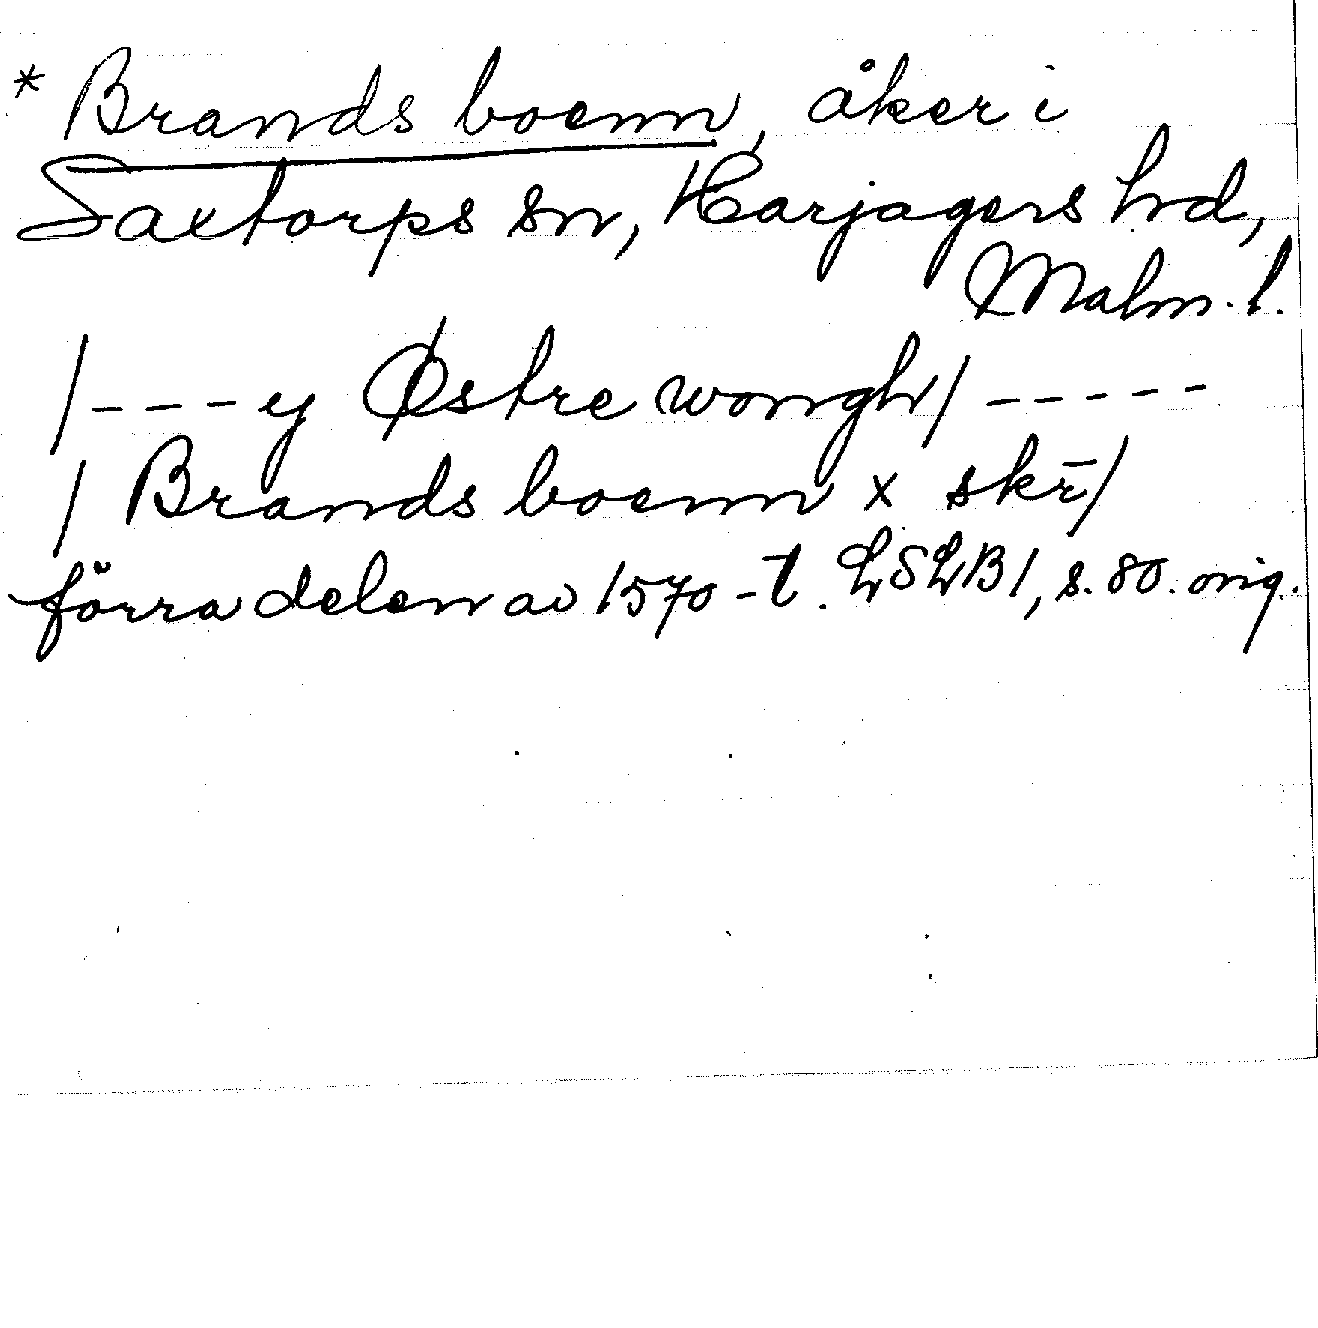 * Brands boenn, åker i
Saxtorps sn, Harjagers hd,
Malm. l.
/---y Østre wongh/-----
/ Brands boenn x skr̄/
förra delen av 1570-t. LSLB1, s. 80. orig.